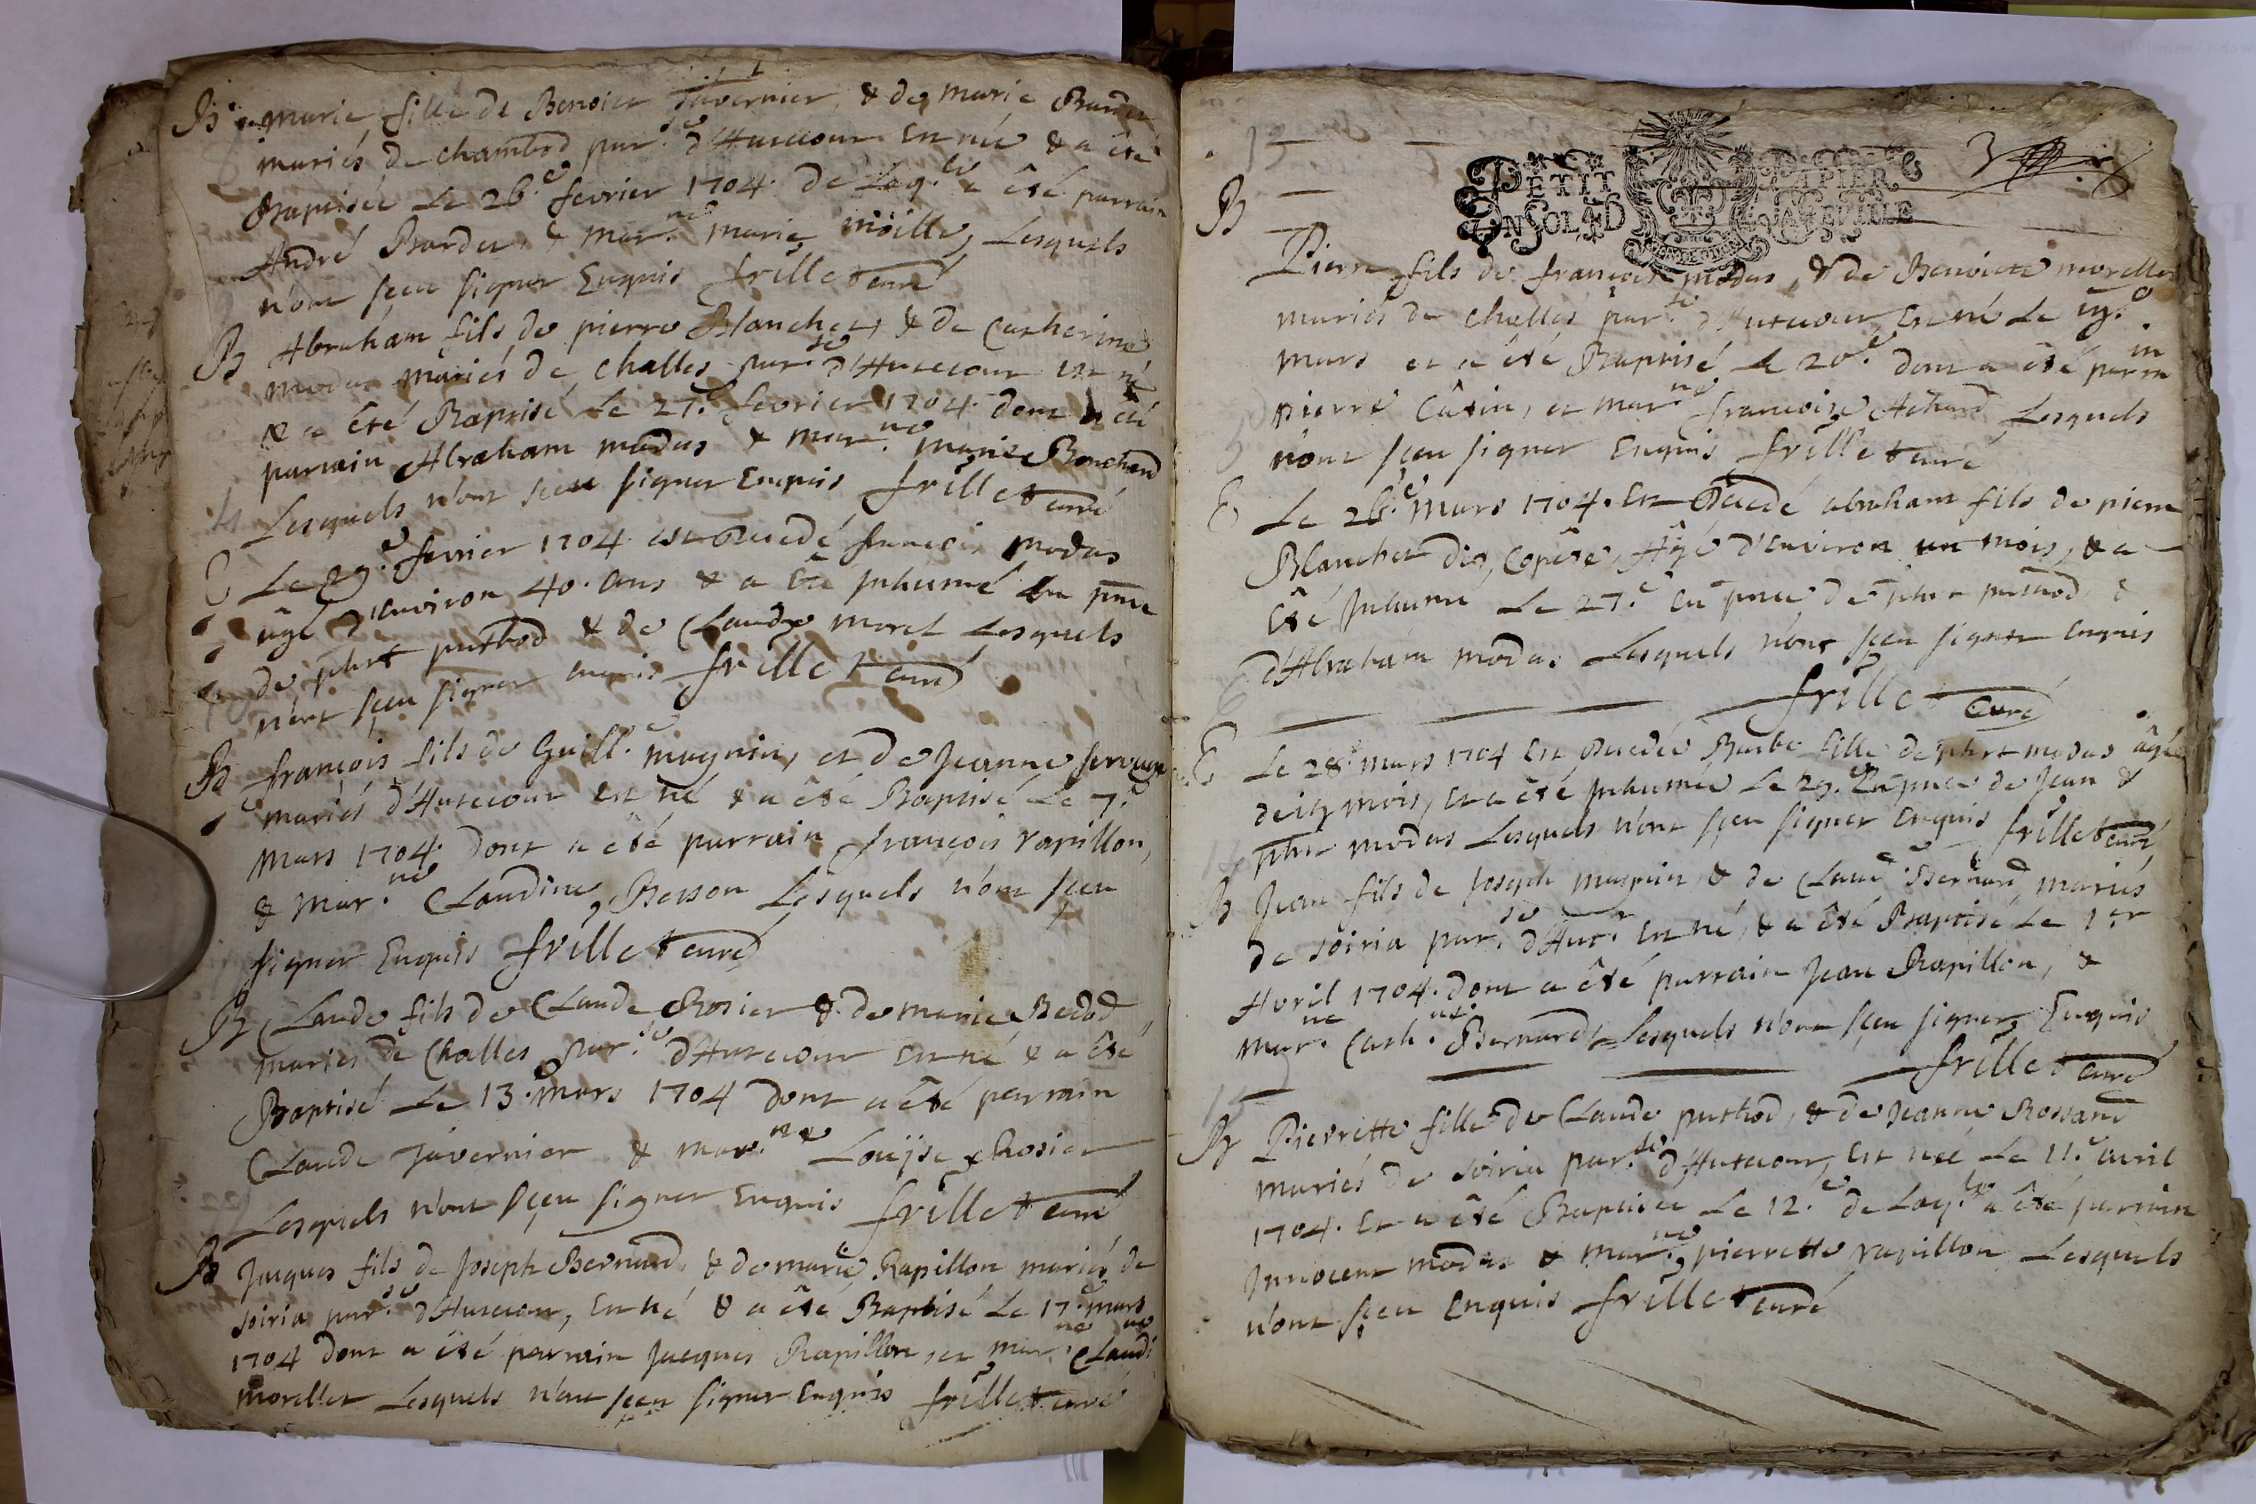 B marie fille de Benoict Tavernier, & de marie Bardet
mariés de chambod par.se d'Hautecour Est née & a été
Baptisée Le 26.e fevrier 1704. de Laq.le a été parrain
André Bardet, & mar.ne marie Lesquels
n'ont sçeu signer Enquis frillet curé
B Abrahám fils de pierre Blanchet, & de Catherine
modas mariés de challes par.se d'Hutecour est né
& a Eté Baptisé Le 27.e fevrier 1704. dont a été
parrain Abraham modas & mar.ne marie Bouchard
Lesquels n'ont sçeu signer Enquis frillet curé
E Le 29.e fevrier 1704 est Decedé francois modas
âgé d'Environ 40. ans & a Eté Inhumé En pnce
de phrt puthod & de Claude morel Lesquels
n'ont sçeu signer enquis frillet curé
B françois fils de Guill.e magnin, et de Jeanne
mariés d'Hutecour Est né & a été Baptisé Le 7.e
Mars 1704. dont a été parrain françois rapillon,
& Mar.ne Claudine Besson Lesquels n'ont sçeu
signer Enquis frillet curé
B Claude fils de Claude Rosier & de marie Bedod
mariés de Challes par.se d'Hutecour Est né & a été
Baptisé Le 13.e Mars 1704 Dont a été parrain
Claude Tavernier & mar.ne Louïse Rosier
Lesquels n'ont sçeu signer Enquis frillet curé
B Jacques fils de Joseph Bernard, & de marie Rapillon mariés de
soiria par.se d'Hutecour, Est né & a été Baptisé Le 17.e mars
1704 dont a été parrain Jacques Rapillon, et mar.ne Claudi.ne
morellet Lesquels n'ont sçeu signer Enquis frillet curé
3
PETIT PAPIER
UN SOL 4 D LA FEUILLE
B
Pierre fils de françois modas, & de Benoicte morellet
mariés de challes par.se d'Hutecour, Est né Le 19.e
mars et a été Baptisé le 20.e dont a été parrain
pierre Câtin, et mar.ne francoise Achard Lesquels
n'ont sçeu signer Enquis frillet curé
E Le 26.e Mars 1704. Est Decedé abraham fils de pierre
Blanchet dit, Âgé d'Environ un mois, & a
Eté Inhumé Le 27.e En pnce de phrt puthod, &
d'Abrahám modas Lesquels n'ont sçeu signer Enquis
frillet Curé
E Le 28.e mars 1704 Est Decedée Barbe fille de phrt modas âgée
de mois, Et a été Inhumée Le 29.e En pnce de Jean &
phrt modas Lesquels n'ont sçeu signer Enquis frillet curé
B Jean fils de Joseph magnin & de Claud.e Bernard mariés
de soiria par.se d'Hut.r Est né, & a été Baptisé Le 1er
Avril 1704. dont a été parrain Jean Rapillon, &
Mar.ne Cath.ne Bernardt Lesquels n'ont sçeu signer Enquis
frillet curé
B Pierrette fille de Claude puthod, & de Jeanne Rossand
mariés de soiria par.se d'Hutecour, Est née Le 11.e avril
1704. Et a été Baptisée Le 12.e de Laq.le a été parrain
Innocent modas & mar.ne pierrette rapillon Lesquels
n'ont sçeu Enquis frillet curé